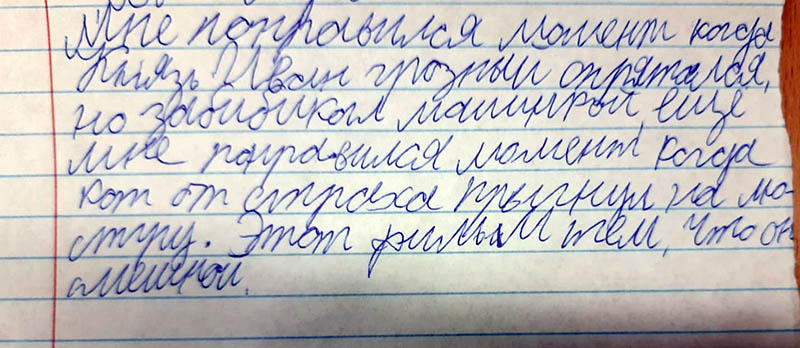 Мне понравился момент когда
Князь Иван грозный спрятался,
но забибикал машинкой, еще
мне понравился момент когда
кот от страха прыгнул на лю-
стру. Этот фильм тем, что он
смешной.